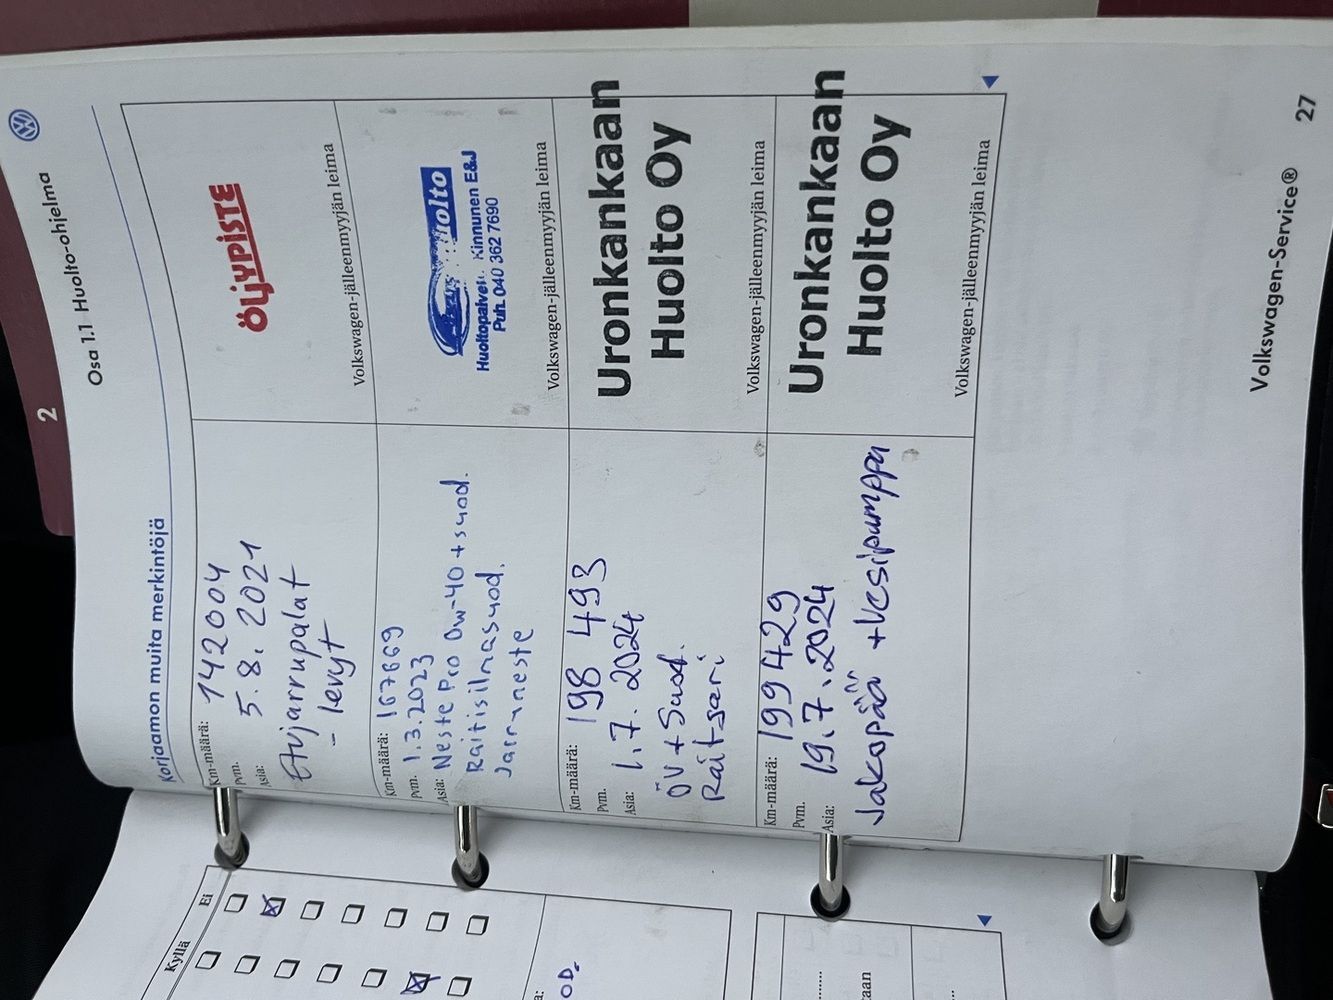 2
Osa 1.1 Huolto-ohjelma
Korjaamon muita merkintöjä
Km-määrä: 142004
Pvm. 5.8.2021
Asia: Etujarrupalat
- levyt
ÖLJYPISTE
Volkswagen-jälleenmyyjän leima
Km-määrä: 167669
Pvm. 1.3.2023
Asia: Neste Pro 0w-40 + suod.
Raitisilmasuod.
Jarruneste
Kinnunen E&J
Puh. 040 362 7690
Volkswagen-jälleenmyyjän leima
Km-määrä: 198 493
Pvm. 1.7.2024
Asia: ÖV + Suod.
Uronkankaan
Huolto Oy
Volkswagen-jälleenmyyjän leima
Km-määrä: 199429
Pvm. 19.7.2024
Asia: Jakopää + Vesipumppu
Uronkankaan
Huolto Oy
Volkswagen-jälleenmyyjän leima
Volkswagen-Service®
27
Kyllä Ei
OD.